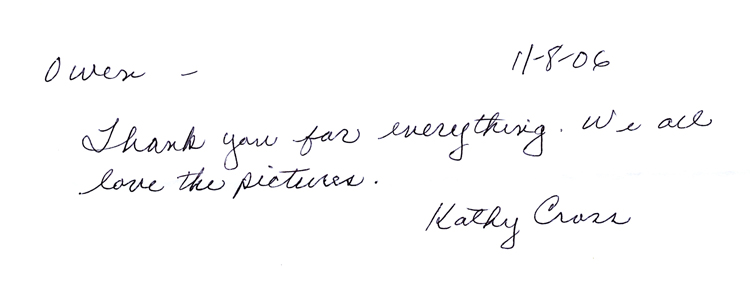 Owen - 11-8-06
Thank you for everything. We all
love the pictures.
Kathy Cross